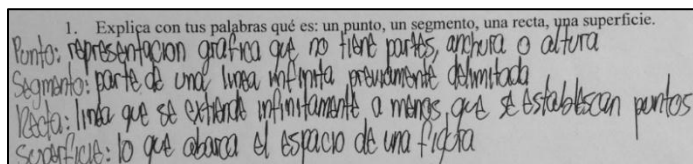 1. Explica con tus palabras qué es: un punto, un segmento, una recta, una superficie.
Punto: representacion grafica que no tiene partes, anchura o altura
Segmento: parte de una linea infinita previamente delimitada
Recta: linea que se extiende infinitamente a menos que se establescan puntos
Superficie: lo que abarca el espacio de una figura